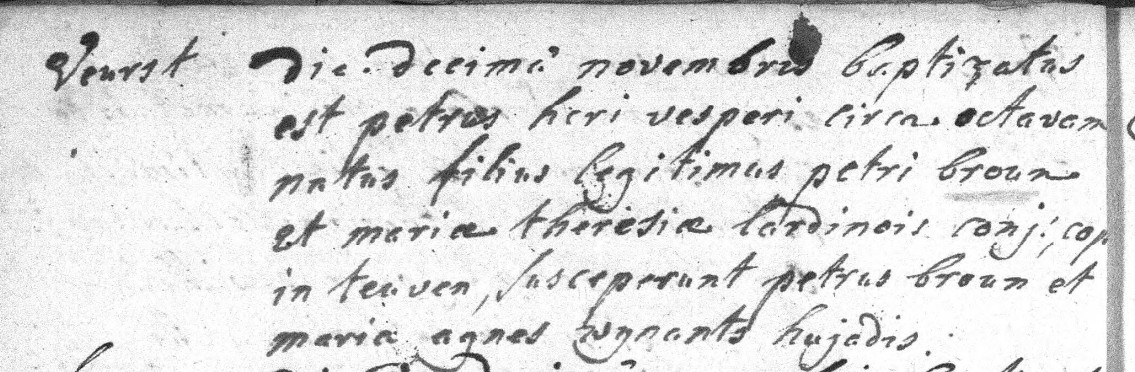 Veurst
Die decimâ novembris baptizatus
est petrus heri vesperi circa octavam
natus filius legitimus petri broun
et mariæ theresiæ lardinois conj:, cop
in teuven, susceperunt petrus broun et
maria agnes wynants hujadis.